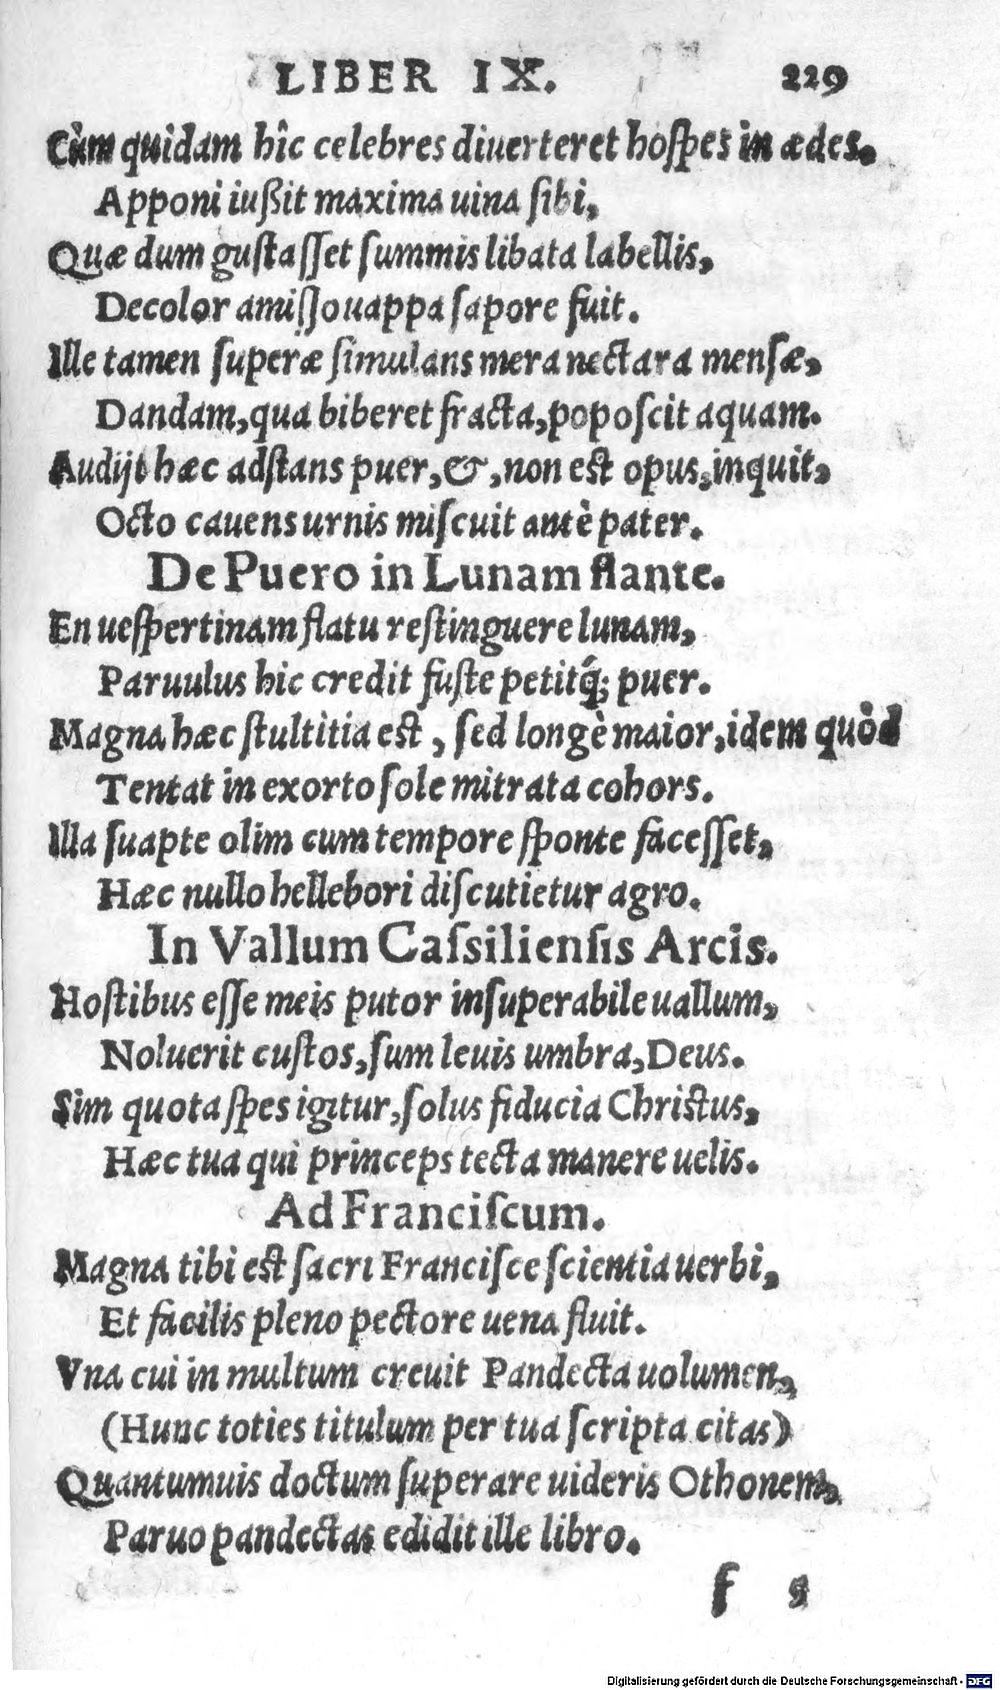 LIBER IX. 229
Cùm quidam hîc celebres diuerteret hoſpes in ædes.
Apponi iußit maxima uina ſibi,
Quæ dum guſtaſſet ſummis libata labellis,
Decolor amiſſo uappa ſapore fuit.
Ille tamen ſuperæ ſimulans mera nectara menſæ,
Dandam, qua biberet fracta, popoſcit aquam.
Audijt hæc adſtans puer, &, non est opus, inquit,
Octo cauens urnis miſcuit antè pater.
De Puero in Lunam flante.
En ueſpertinam flatu reſtinguere lunam,
Paruulus hic credit fuſte petitq́; puer.
Magna hæc ſtultitia est, ſed longè maior, idem quòd
Tentat in exorto ſole mitrata cohors.
Illa ſuapte olim cum tempore ſponte faceſſet,
Hæc nullo hellebori diſcutietur agro.
In Vallum Caſsilienſis Arcis.
Hoſtibus eſſe meis putor inſuperabile uallum,
Noluerit cuſtos, ſum leuis umbra, Deus.
Sim quota ſpes igitur, ſolus fiducia Chriſtus,
Hæc tua qui princeps tecta manere uelis.
Ad Franciſcum.
Magna tibi est ſacri Franciſce ſcientia uerbi,
Et facilis pleno pectore uena fluit.
Vna cui in multum creuit Pandecta uolumen,
(Hunc toties titulum per tua ſcripta citas)
Quantumuis doctum ſuperare uideris Othonem,
Paruo pandectas edidit ille libro.
f
Digitalisierung gefördert durch die Deutsche Forschungsgemeinschaft - DFG